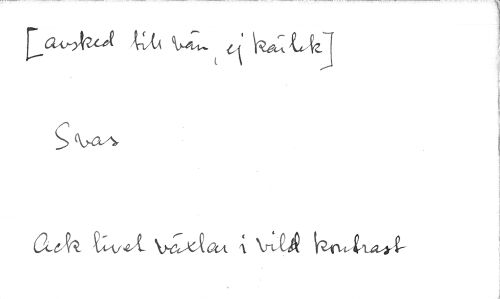 [avsked till vän, ej kärlek]
Svar
Ack livet växlar i vild kontrast